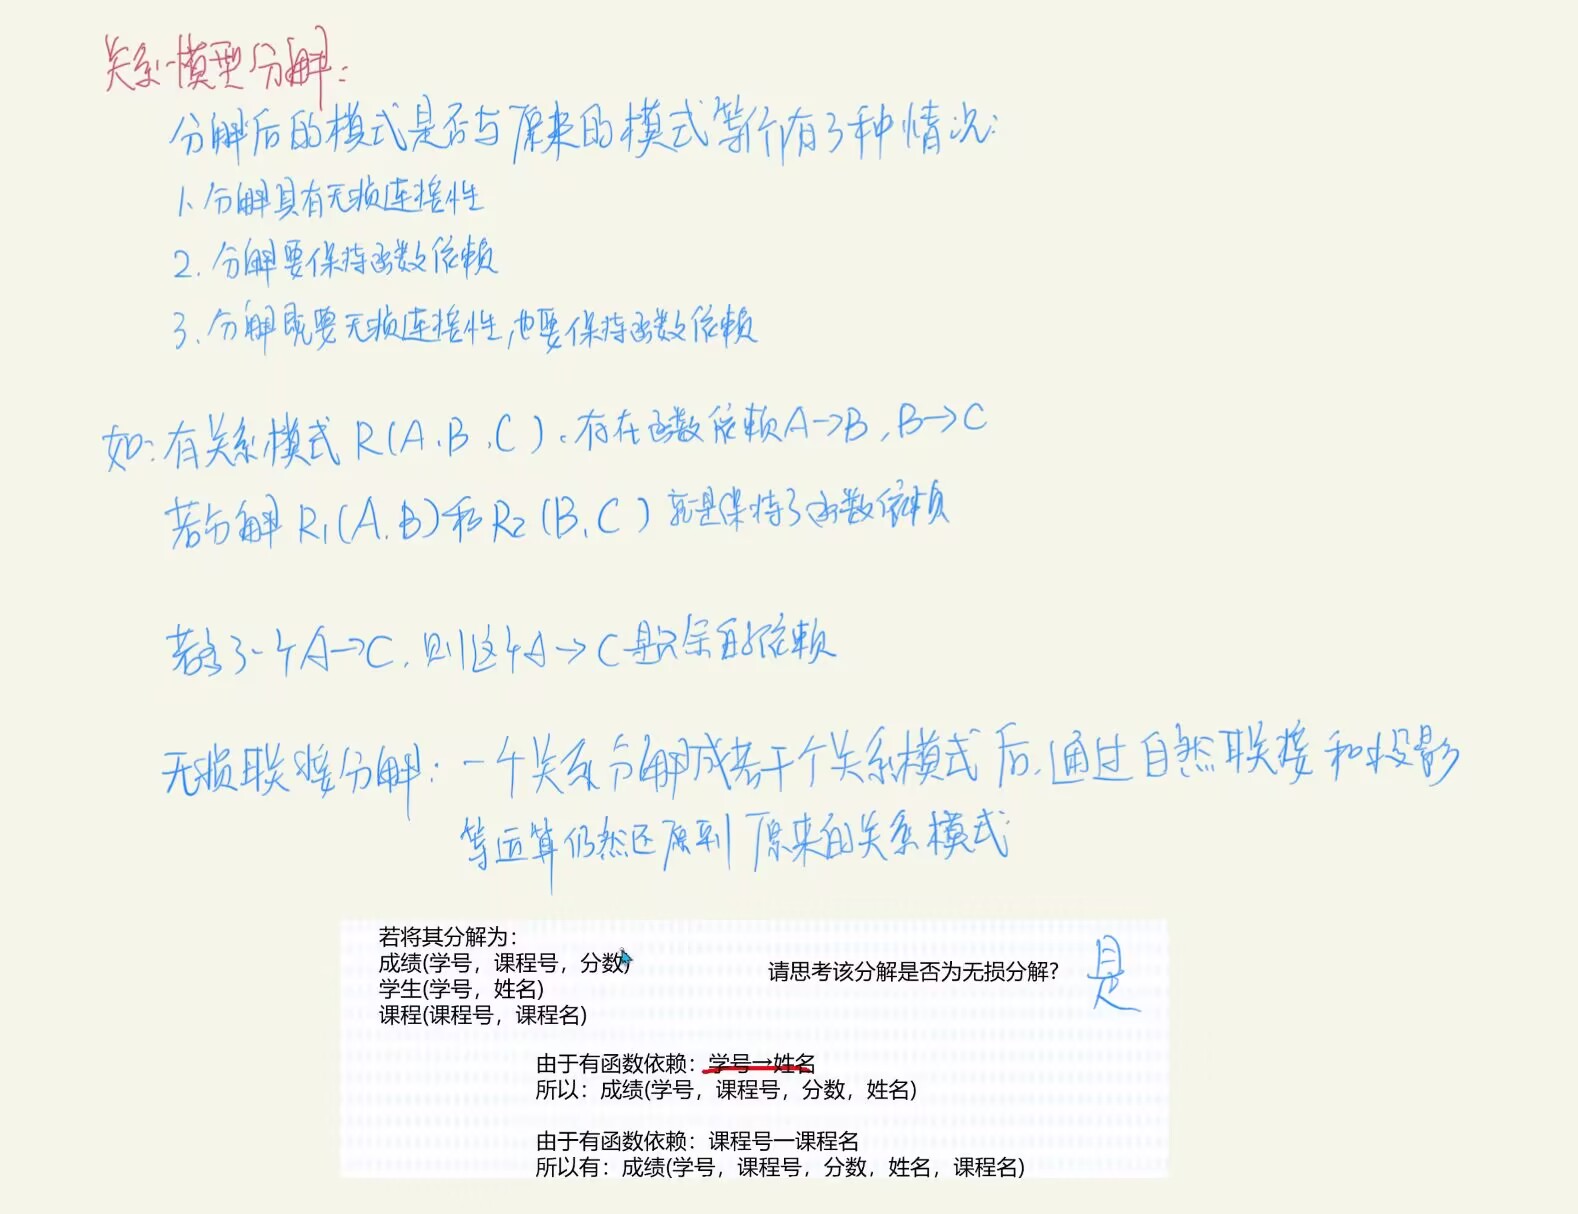 关系模型分解：
分解后的模式是否与原来的模式等价有3种情况：
1. 分解具有无损连接性
2. 分解要保持函数依赖
3. 分解既要无损连接性，也要保持函数依赖
如：有关系模式 R(A、B、C)，存在函数依赖A→B，B→C
若分解 R₁(A、B)和R₂(B、C)就是保持了函数依赖
若多了一个A→C，则这个A→C是冗余的依赖
无损联接分解：一个关系分解成若干个关系模式后，通过自然联接和投影
等运算仍然还原到原来的关系模式
若将其分解为：
成绩(学号，课程号，分数)
学生(学号，姓名)
课程(课程号，课程名)
请思考该分解是否为无损分解？ 是
由于有函数依赖：学号→姓名
所以：成绩(学号，课程号，分数，姓名)
由于有函数依赖：课程号—课程名
所以有：成绩(学号，课程号，分数，姓名，课程名)